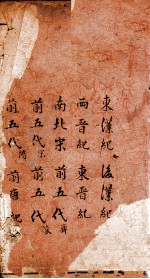 東漢紀 後漢紀
西晉紀 東晉紀
南北宋 前五代齊
前五代 前五代
前五代隋 前唐紀